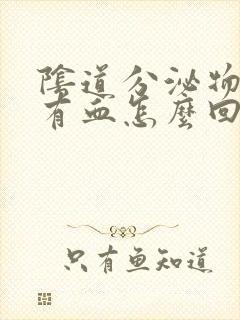 陰道分泌物
有血怎麼回
只有鱼知道